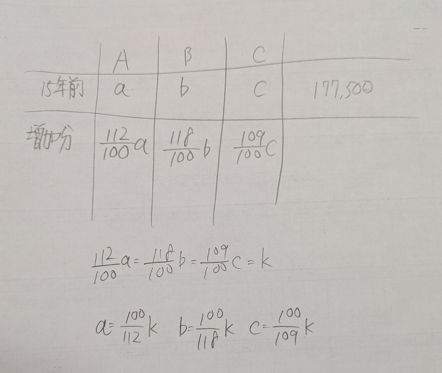 A B C
15年前 a b c 177,500
増加分 112/100 a 118/100 b 109/100 c
112/100 a = 118/100 b = 109/100 c = k
a = 100/112 k b = 100/118 k c = 100/109 k